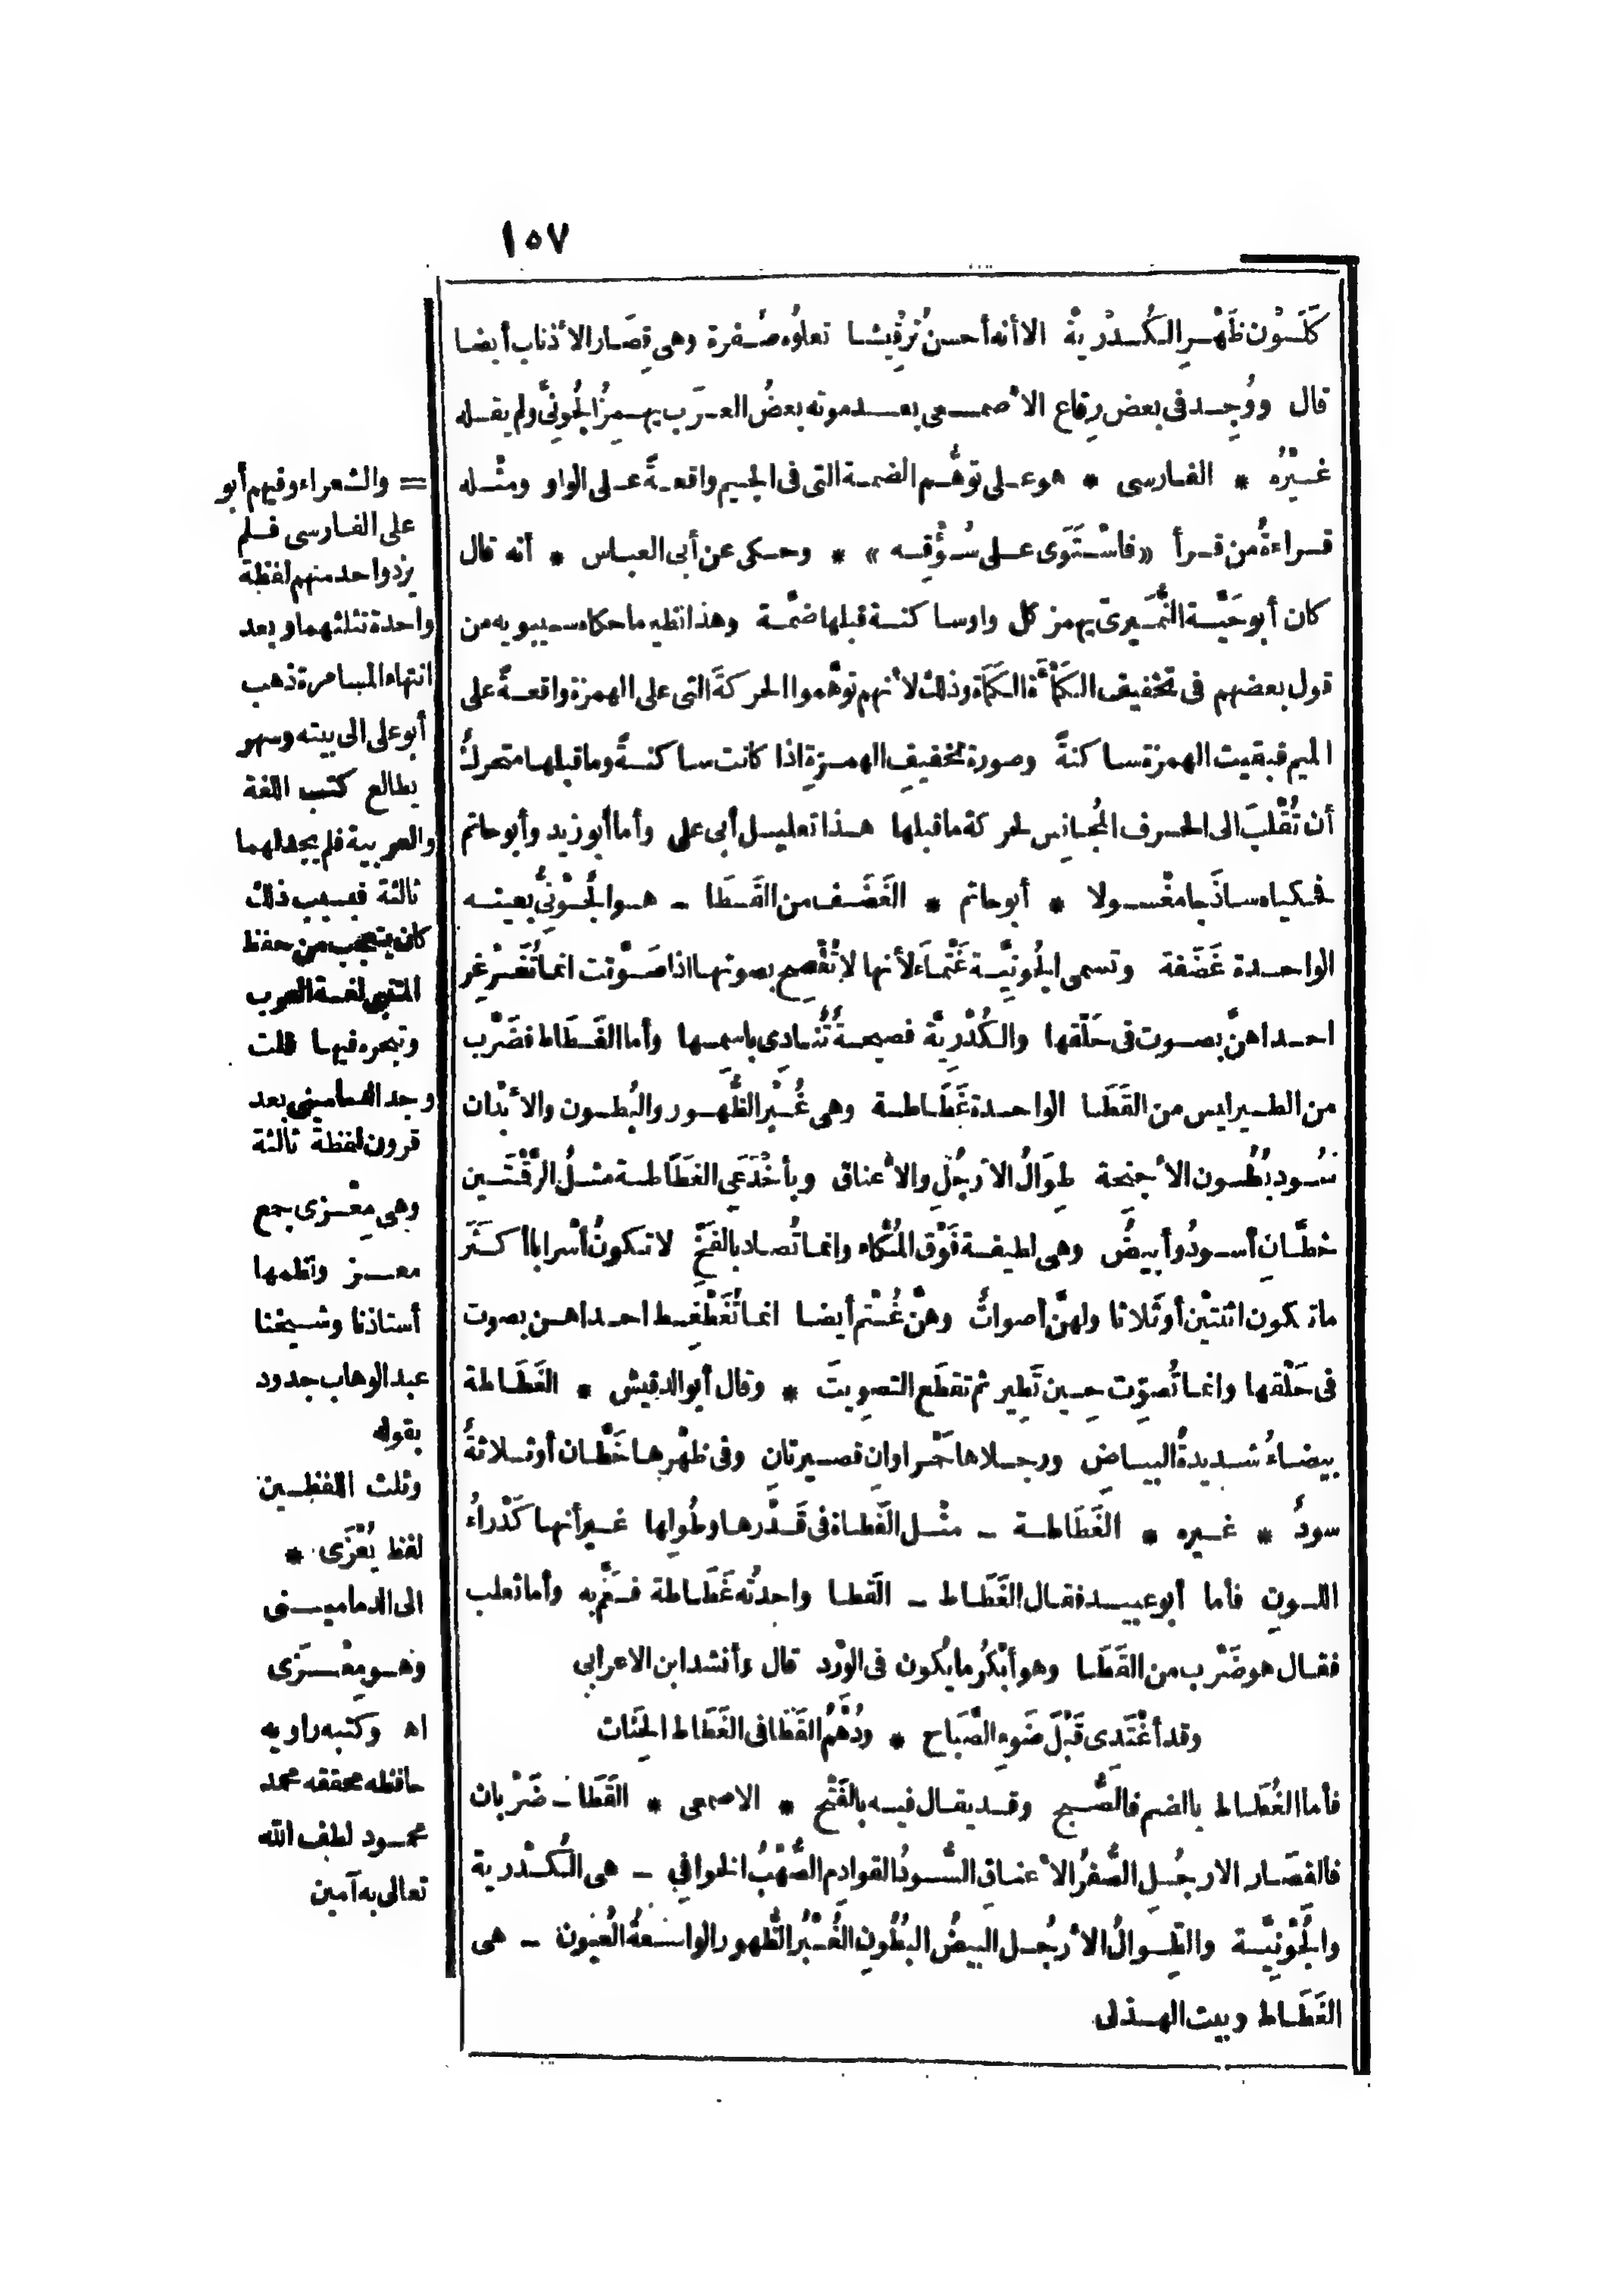 ١٥٧
كَلَوْن ظَهْرِ الكُدْرِيَّة الا أنه أحسنُ تَرْقِيشا تعلوُه صُفرة وهى قِصَار الأذناب أيضا
قال ووُجِد فى بعض رِقاع الأصمعى بعد موته بعضُ العرَب يهمِزُ الجُونِىَّ ولم يقله
غيْرُه * الفارسى * هو على توهُّم الضمة التى فى الجيم واقعةً على الواو ومثْله
قراءةُ من قرأ «فاسْتَوَى على سُؤْقِه» * وحكى عن أبى العباس * أنه قال
كان أبو حَيَّة النُّمَيرىّ يهمز كل واو ساكنة قبلها ضمَّة وهذا نظير ما حكاه سيبويه من
قول بعضهم فى تخفيف الكَمْأَة الكَمَاة وذلك لأنهم توهَّموا الحركةَ التى على الهمزة واقعةً على
الميم فبقيت الهمزة ساكنةً وصورة تخفيفِ الهمزةِ اذا كانت ساكنةً وما قبلها متحركٌ
أن تُقْلَبَ الى الحرف المُجانِس لحركة ما قبلها هذا تعليل أبى على وأما أبو زيد وأبو حاتم
فحكياه ساذَجا مغْسولا * أبو حاتم * الغَضَف من القَطَا ـ هو الجُوْنِىُّ بعينه
الواحدة غَضَفة وتسمى الجُونِيَّة غَتْمَاءَ لأنها لا تُفْصِح بصوتها اذا صَوَّتت انما تُغَرْغِر
احداهنَّ بصوت فى حَلْقها والكُدْرِيَّة فصيحةٌ تُنادِى باسمِها وأما الغَطَاط فضَرْب
من الطير ليس من القَطَا الواحدة غَطَاطة وهى غُبْر الظُّهور والبُطون والأبْدان
سُود بُطُون الأجنحة طِوَالُ الأرجُلِ والأعناق وبأخْدَعَىِ الغَطَاطة مثلُ الرَّقْمَتَين
خطَّانِ أسودُ وأبيضُ وهى لطيفة فَوْق المُكَّاء وانما تُصاد بالفَخِّ لا تكونُ أسْرابا أكثَرَ
ما تكون اثنتَيْن أو ثَلاثا ولهنَّ أصواتٌ وهنّ غُتْم أيضا انما تُغَطْغِط احداهن بصوت
فى حَلْقها وانما تُصوِّت حِين تَطِير ثم تقطَع التصوِيتَ * وقال أبو الدقيش * الغَطَاطة
بيضاءُ شديدةُ البياضِ ورجلاها حَمْراوانِ قصيرتانِ وفى ظهْرِها خَطَّان أو ثلاثةٌ
سودٌ * غيره * الغَطَاطة ـ مثْل القَطاة فى قَدْرها وطُولها غير أنها كَدْراءُ
اللونِ فأما أبو عبيد فقال الغَطَاط ـ القَطا واحدتُه غَطَاطة فعَمَّ به وأما ثعلب
فقال هو ضَرْب من القَطَا وهو أبْكَرُ ما يكون فى الوِرْد قال وأنشد ابن الاعرابى
وقد أغْتَدى قَبْلَ ضَوءِ الصَّبَاح * ودُهْمُ القَطَا فى الغَطَاط الحِثاث
فأما الغُطَاط بالضم فالصُّبح وقد يقال فيه بالفَتْح * الاصمعى * القَطَا ـ ضَرْبان
فالقصَار الارجُلِ الصُّفرُ الأعناقِ السُّودُ القوادِم الصُّهْبُ الخوافِى ـ هى الكُدْرية
والجُوْنِيَّة والطِّوالُ الأرجُل البيضُ البُطُونِ الغُبْرُ الظُّهورِ الواسعةُ العُيون ـ هى
الغَطَاط وبيت الهذلى
= والشعراء وفيهم أبو
على الفارسى فلم
يزد واحد منهم لفظة
واحدة تثلثهما وبعد
انتهاء المسامرة ذهب
أبو على الى بيته وسهر
يطالع كتب اللغة
والعربية فلم يجد لهما
ثالثة فبسبب ذلك
كان يتعجب من حفظ
المتنبى لغة العرب
وتبحره فيها قلت
وجد الدمامينى بعد
قرون لفظة ثالثة
وهى مِعْزى جمع
معز ونظمها
أستاذنا وشيخنا
عبد الوهاب جدود
بقوله
وثلث اللفظين
لفظ يُعْزَى *
الى الدمامينى
وهو مِعْزَى
اه وكتبه راويه
حافظه محققه محمد
محمود لطف الله
تعالى به آمين